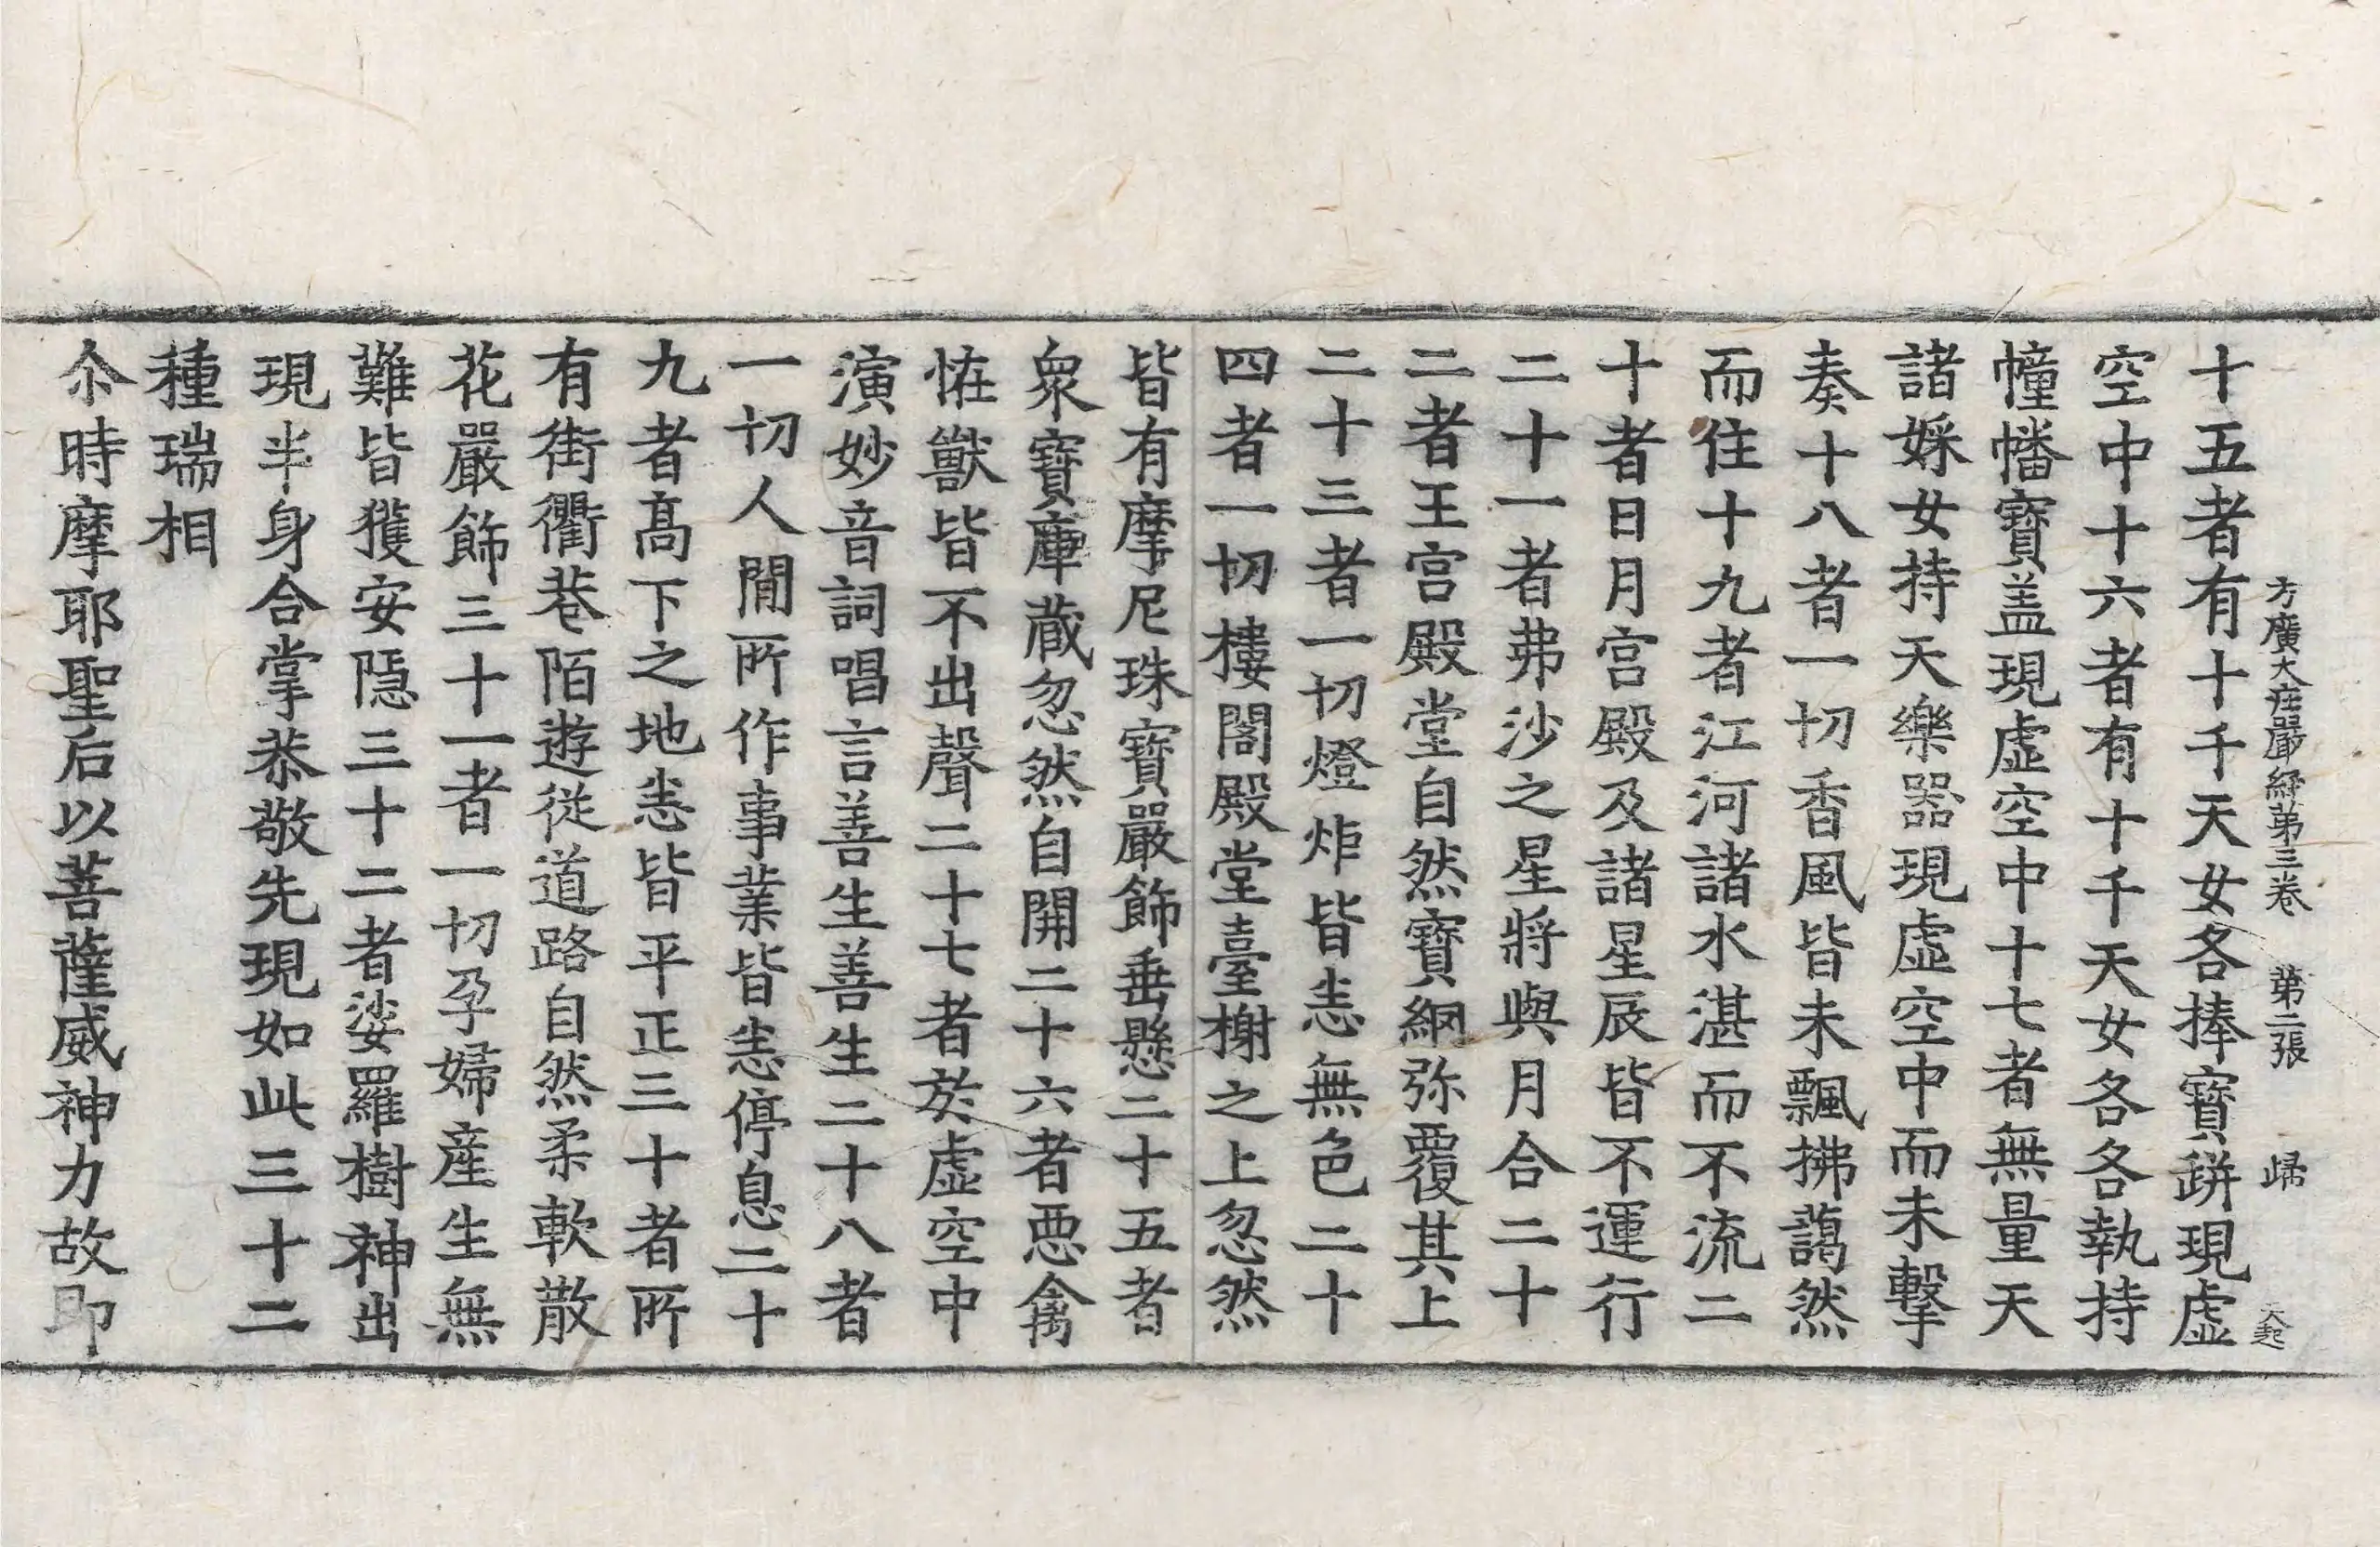 方廣大庄嚴經第三卷 第二張 歸 大起
十五者有十千天女各捧寶缾現虛
空中十六者有十千天女各各執持
幢幡寶盖現虛空中十七者無量天
諸婇女持天樂器現虛空中而未擊
奏十八者一切香風皆未飄拂藹然
而住十九者江河諸水湛而不流二
十者日月宮殿及諸星辰皆不運行
二十一者弗沙之星將與月合二十
二者王宮殿堂自然寶網弥覆其上
二十三者一切燈炸皆恚無色二十
四者一切樓閣殿堂臺榭之上忽然
皆有摩尼珠寶嚴飾垂懸二十五者
衆寶庫蔵忽然自開二十六者惡禽
恠獸皆不出聲二十七者於虛空中
演妙音詞唱言善生善生二十八者
一切人間所作事業皆恚停息二十
九者髙下之地恚皆平正三十者所
有街衢巷陌遊從道路自然柔軟散
花嚴飾三十一者一切孕婦産生無
難皆獲安隱三十二者娑羅樹神出
現半身合掌恭敬先現如此三十二
種瑞相
尒時摩耶聖后以菩薩威神力故即